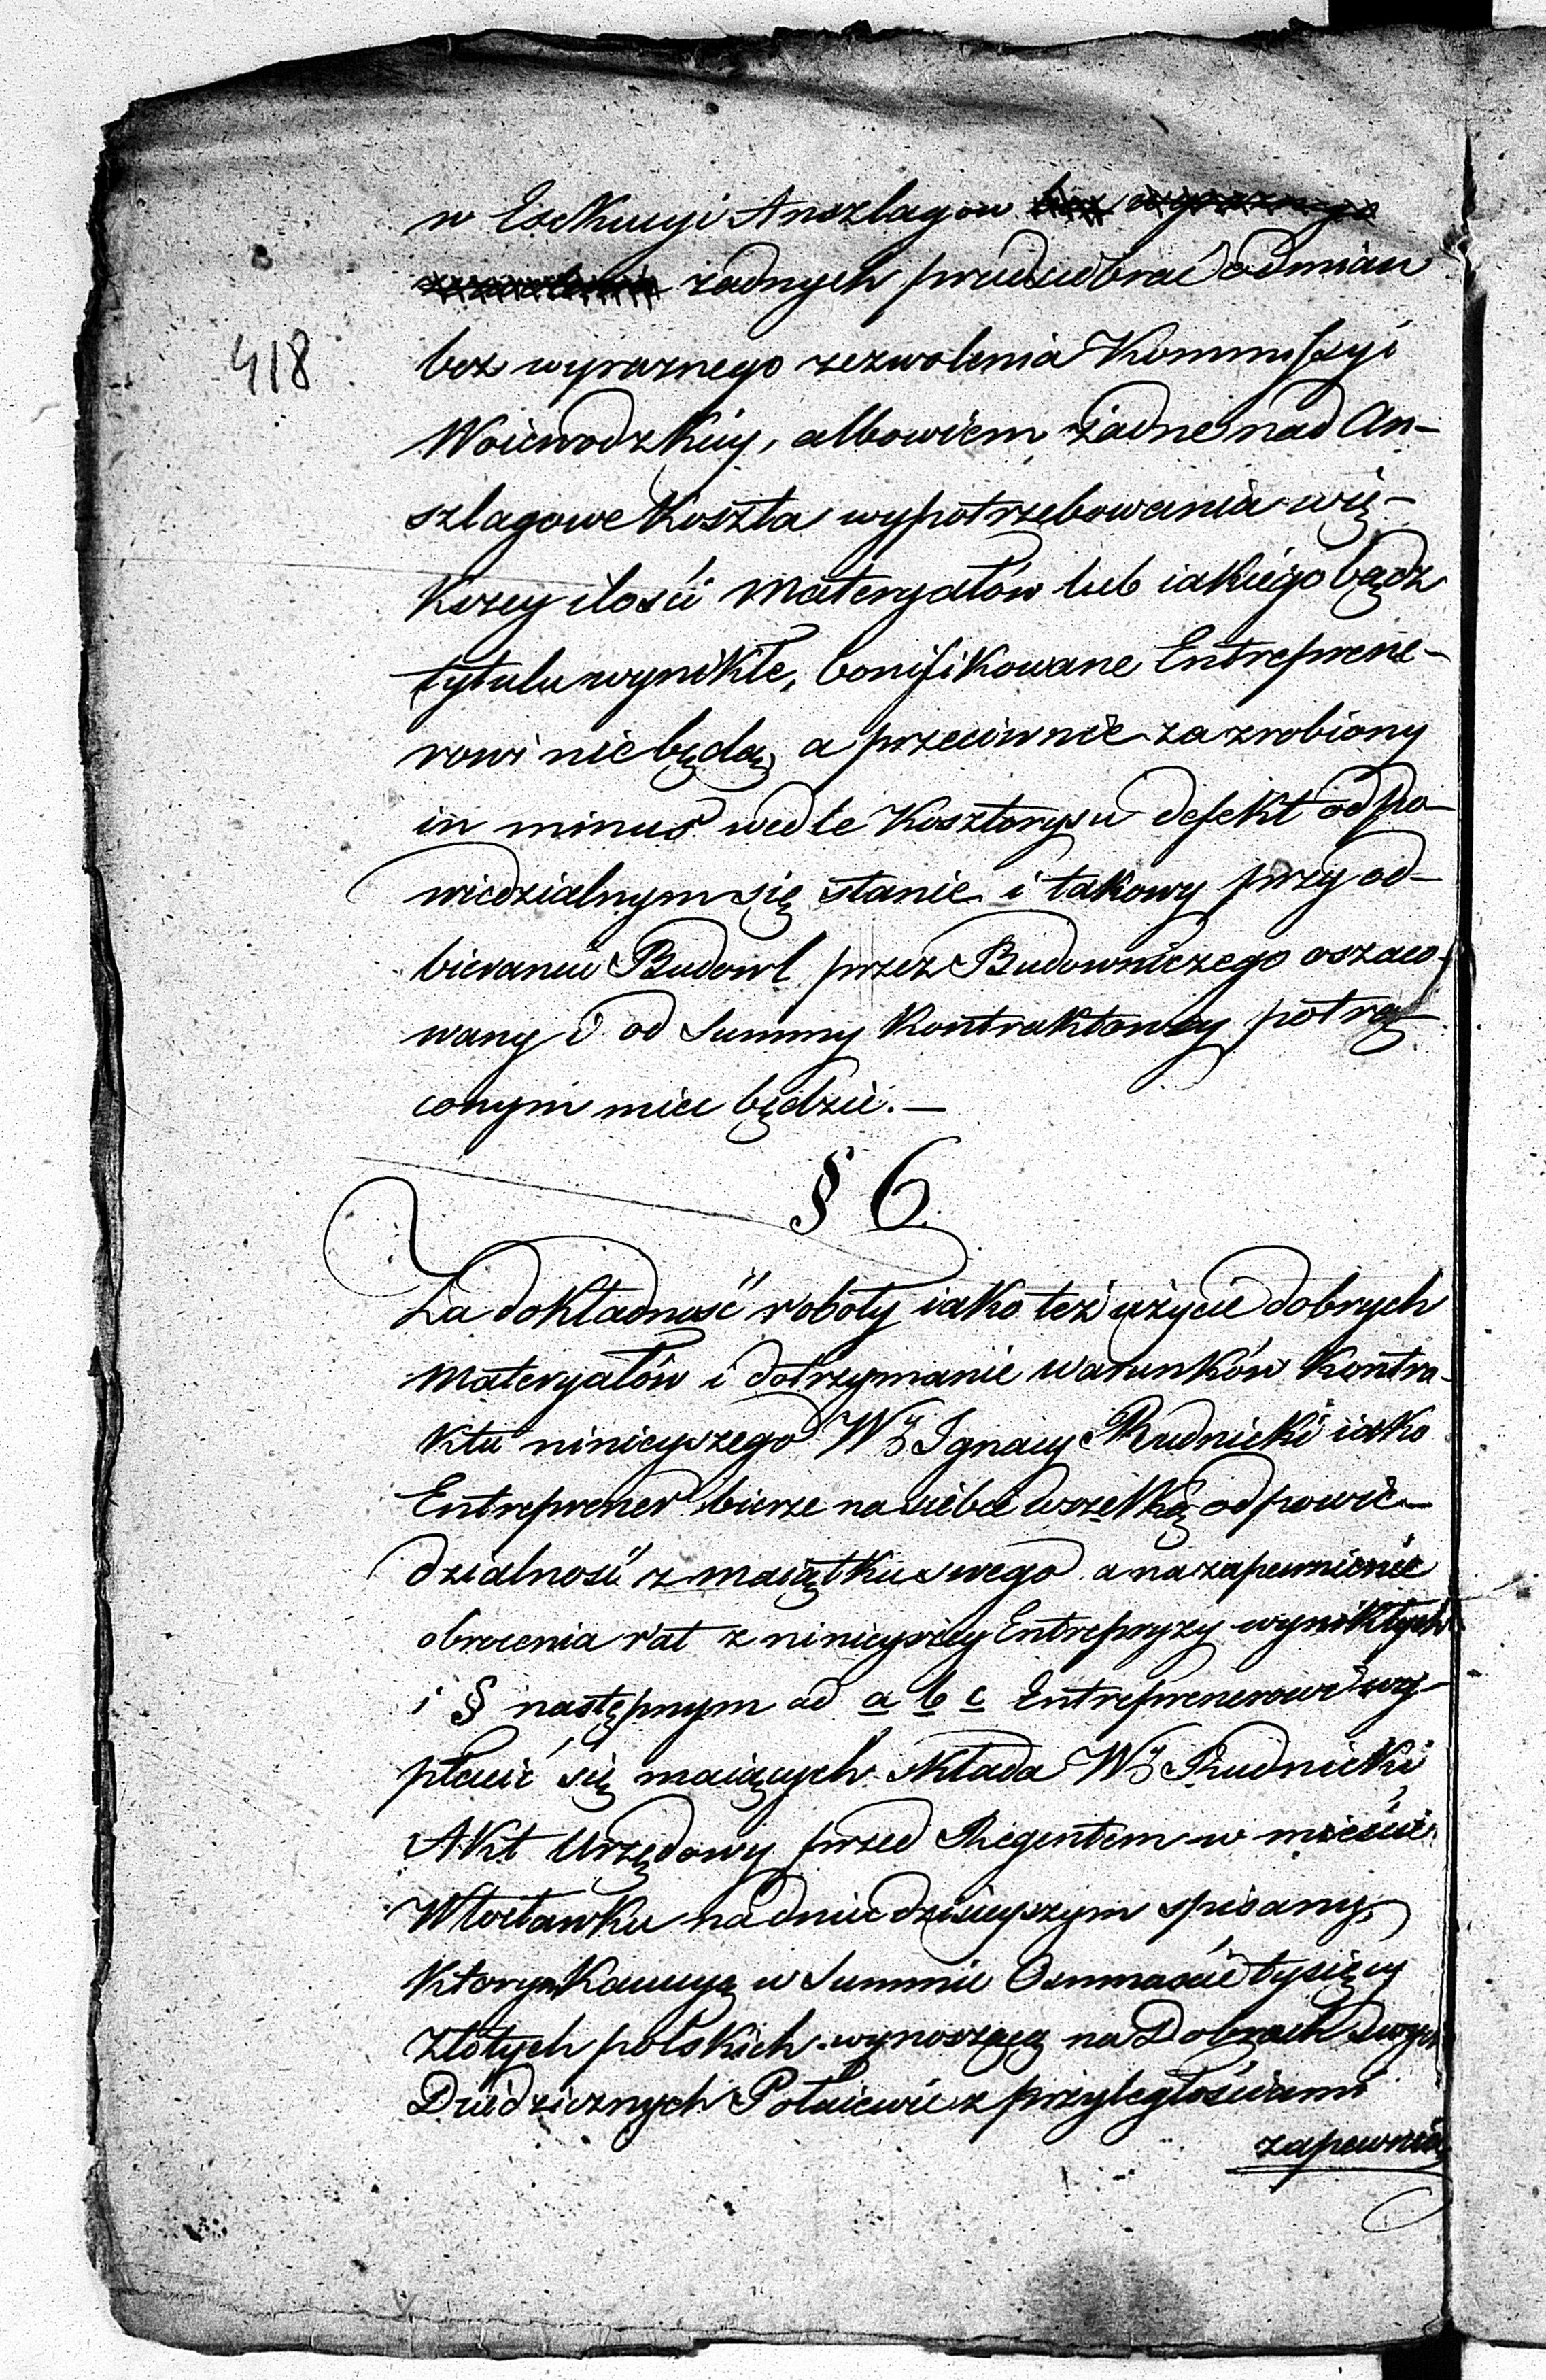 w Exekucyi Anszlagow bez wyraznego
zezwolenia zadnych przedsiebrać odmian
418
bez wyraznego zezwolenia Kommissyi
Woiewodzkiey, albowiem żadne nad An-
szlagowe Koszta wypotrzebowania wię-
Kszey ilości Materyałów lub iakiego bądz
tytulu wynikłe, bonifikowane Entreprene-
rowi nie będą, a przeciwnie za zrobiony
in minus wedle Kosztorysu defekt odpo-
wiedzialnym się stanie i takowy przy od-
bieraniu Budowl przez Budowniczego oszaco-
wany i od Summy Kontraktowey potrą-
conym miec będzie.—
§ 6
Za dokładność roboty iako też użycie dobrych
Materyałów i dotrzymanie warunków Kontra-
Ktu ninieyszego WJ Ignacy Rudnicki iako
Entreprener bierze na siebie wszelką odpowie-
dzialność z maiątku swego a na zapewnienie
obrocenia rat z ninieyszey Entrepryzy wynikłych
i § następnym ad a b c Entreprenerowi wy-
płacić się maiących składa WJ Rudnicki
Akt Urzędowy przed Regentem w mieście
Włocławku na dniu dzisieyszym spisany,
Ktorym Kaucyą w Summie Osmnaście tysięcy
Złotych polskich wynoszącą na Dobrach Swych
Dziedzicznych Połaiewie z przyległościami
zapewnia